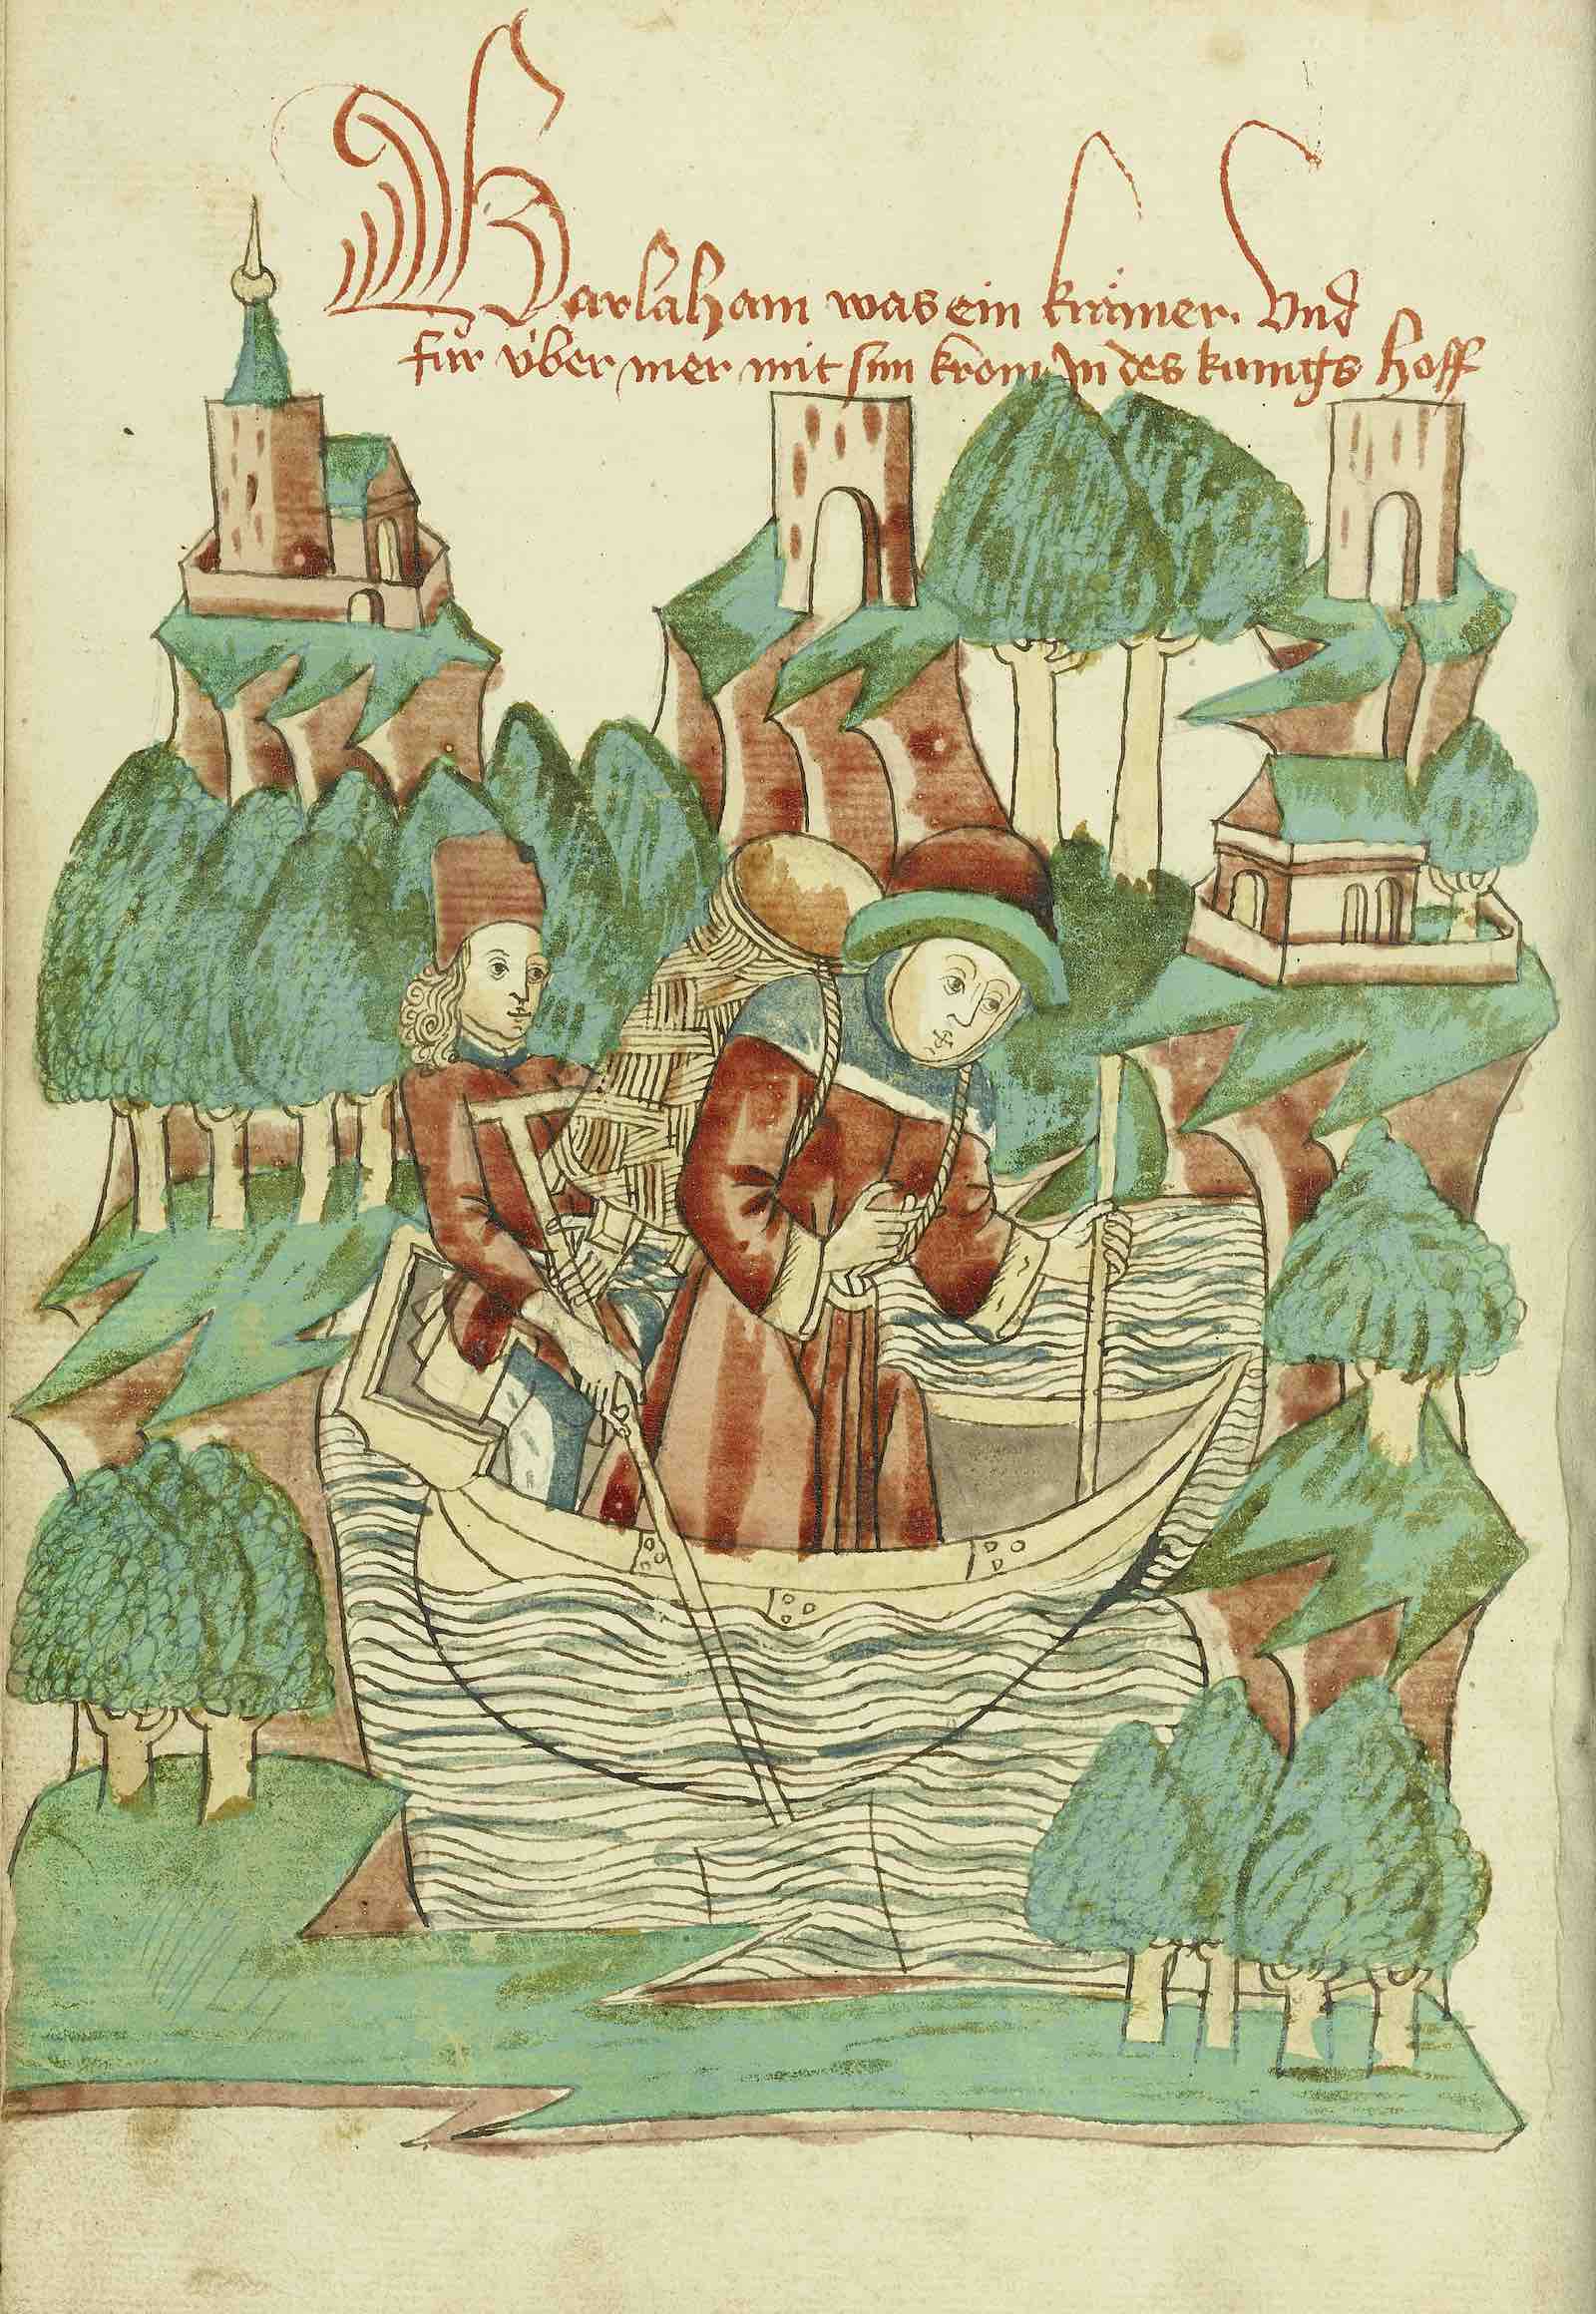 Barlaham was ein krämer. Vnd
für über mer mit sim krom In des kunigs hoff